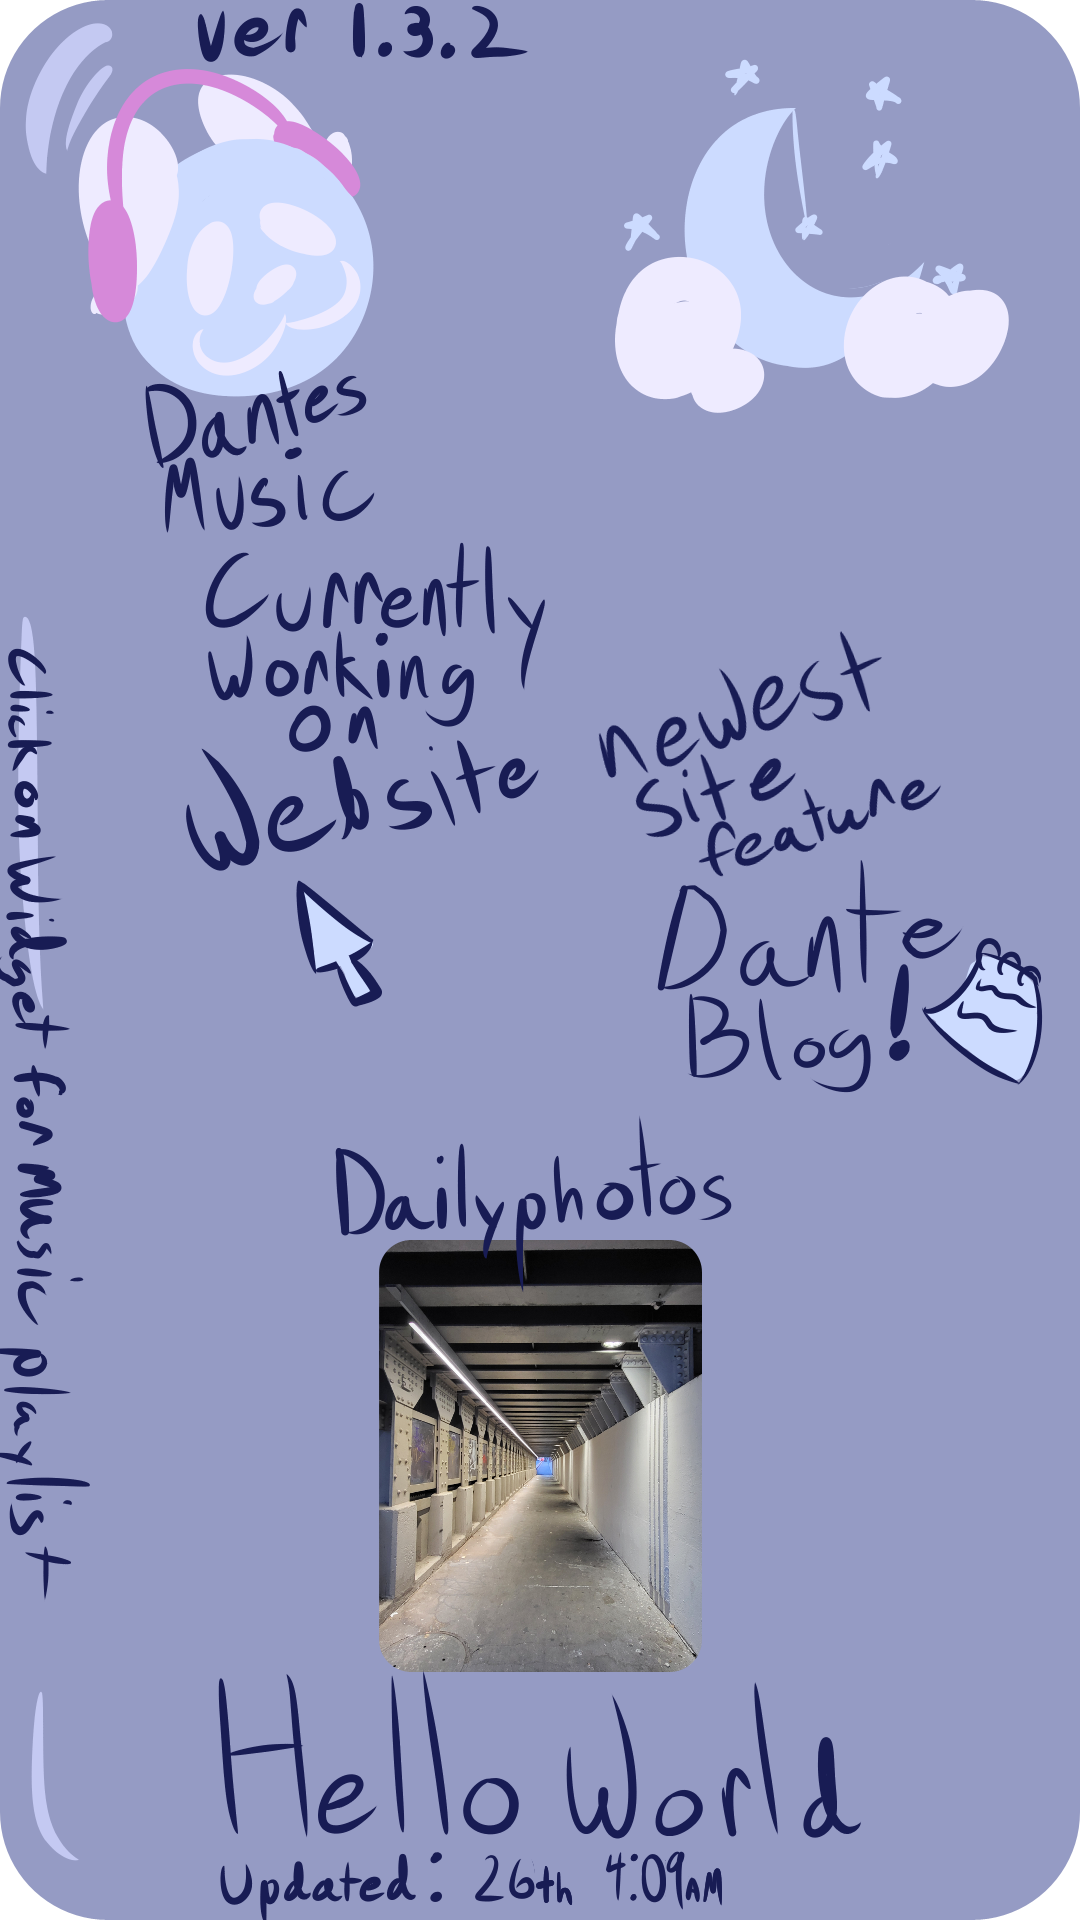 ver 1.3.2
Dantes
Music
Currently
Working
on
Website
newest
site
feature
Dante
Blog!
Click on Widget for Music playlist
Dailyphotos
Hello World
Updated: 26th 4:09AM